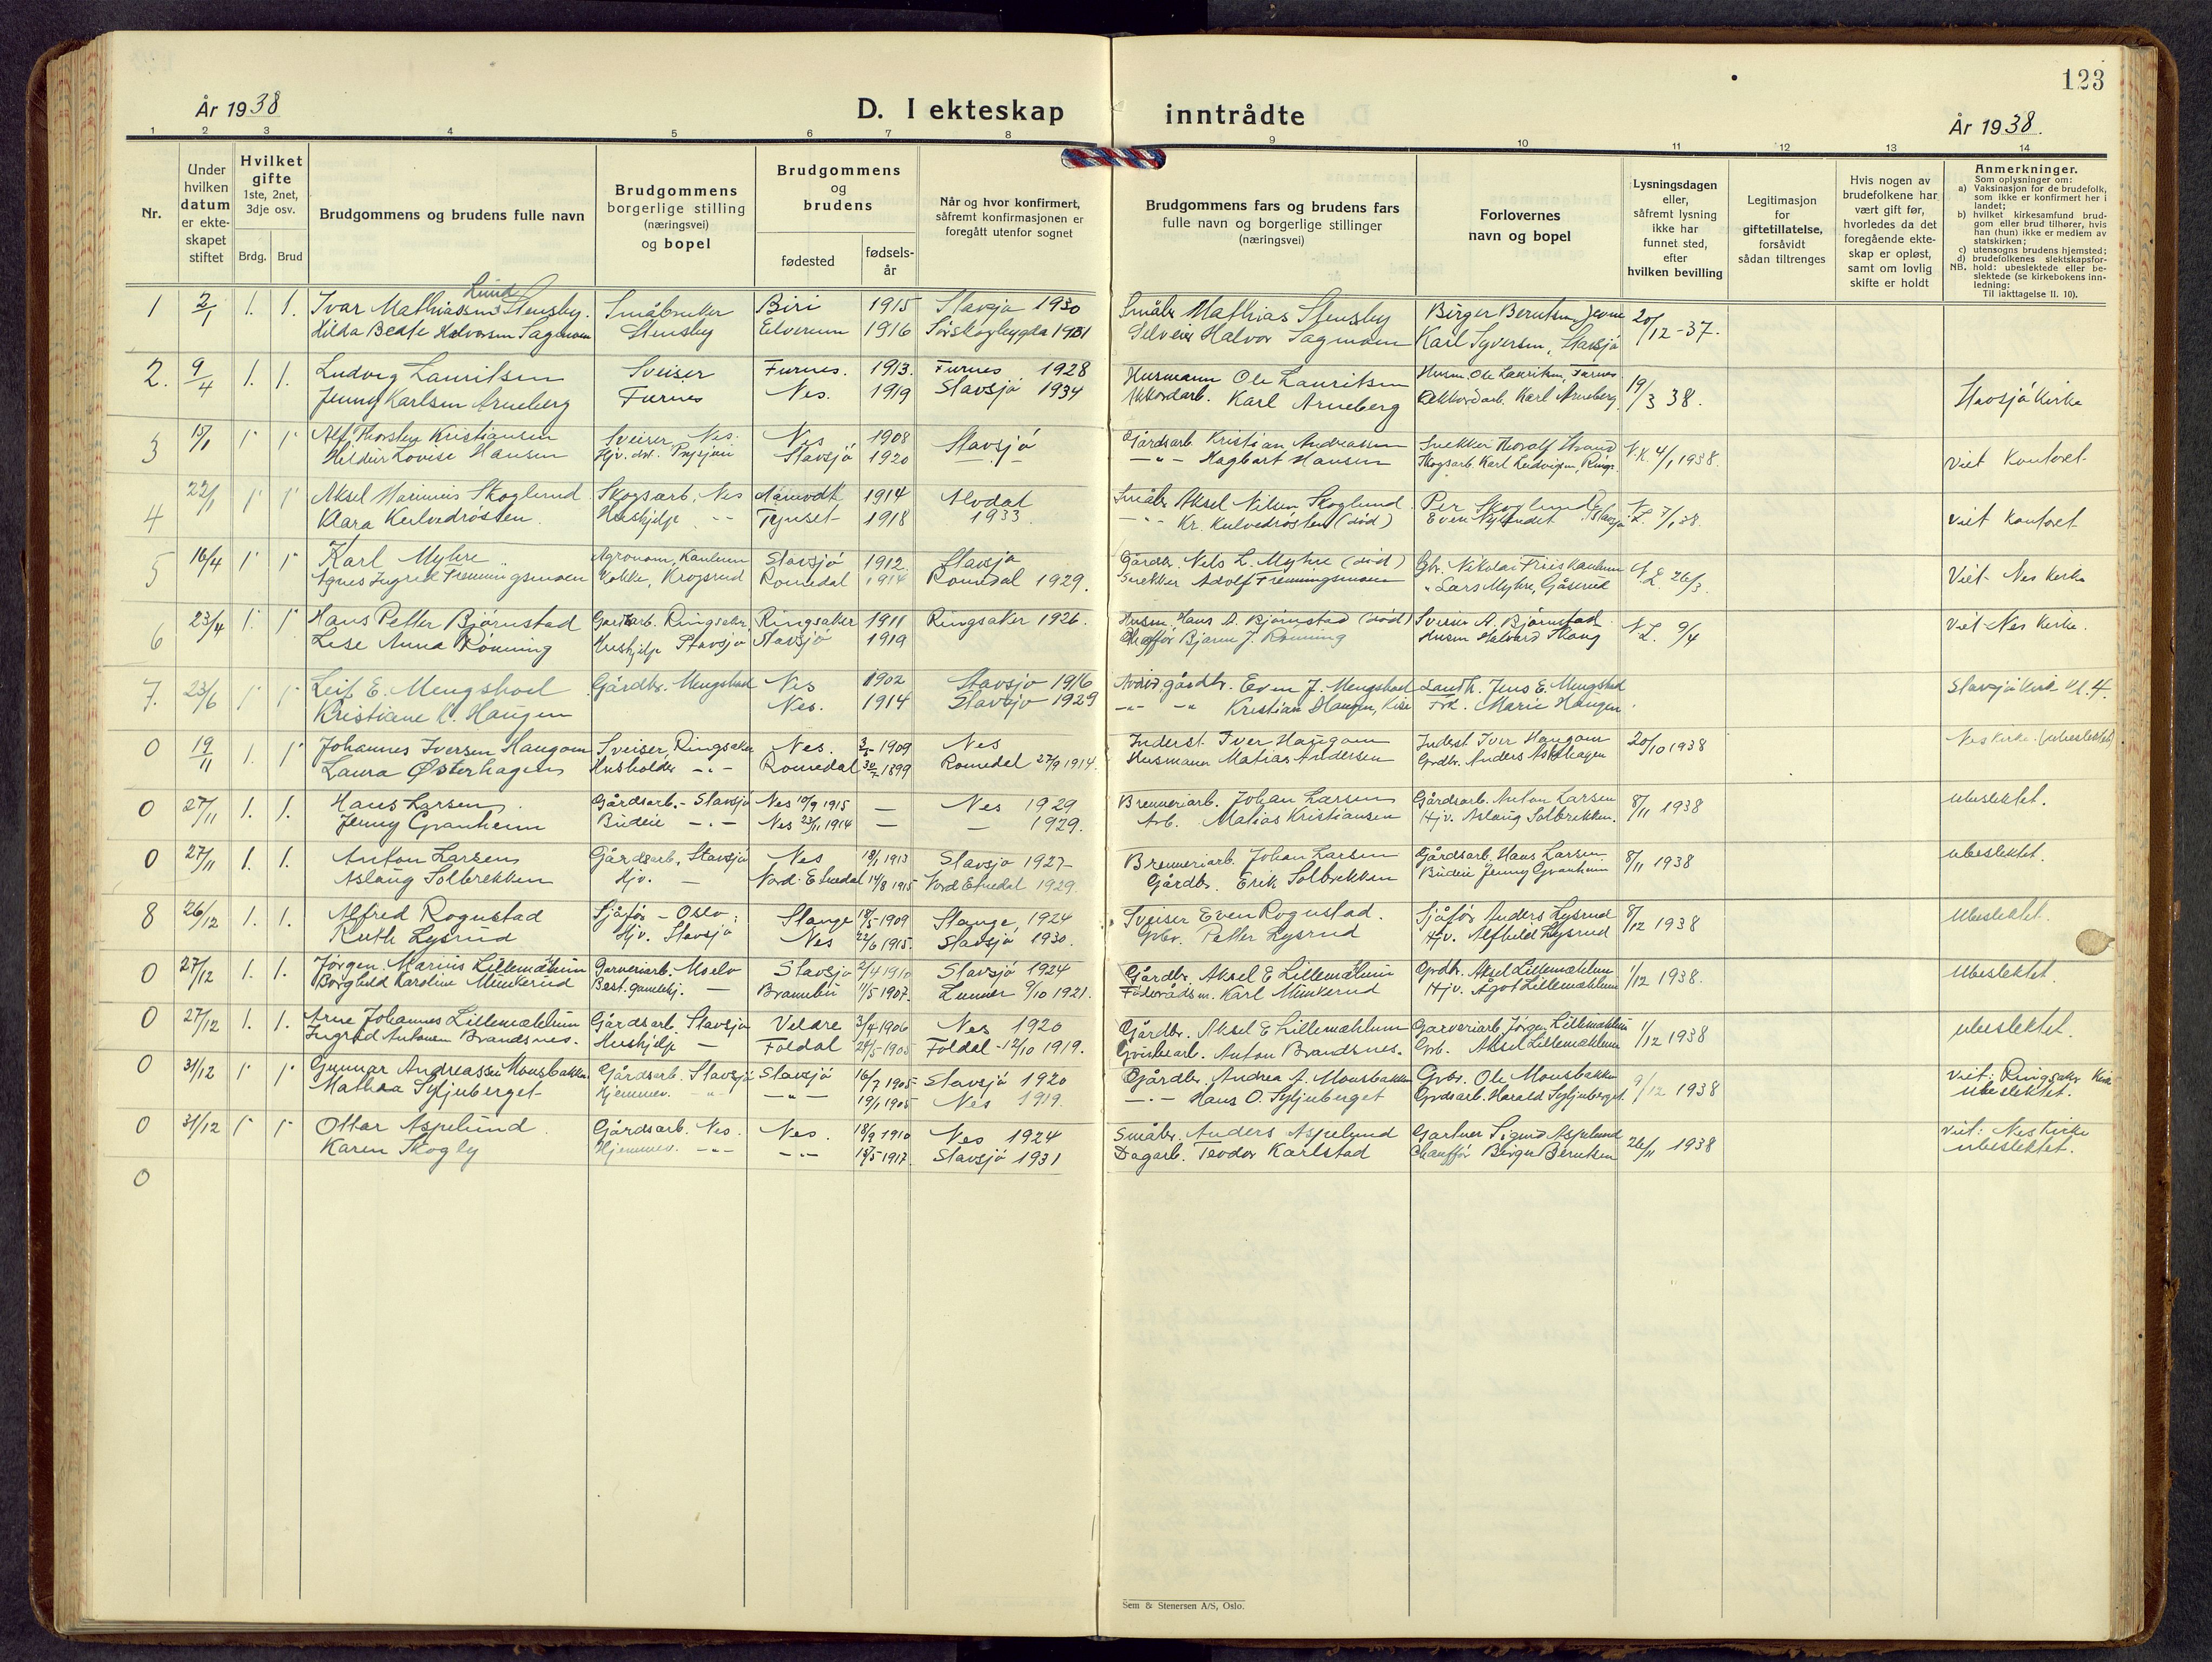 123
År 1938
D. I ekteskap inntrådte
År 1938.
1 2 3 4 5 6 7 8 9 10 11 12 13 14
Nr.
Under hvilken datum er ekteskapet stiftet
Hvilket gifte 1ste, 2net, 3dje osv.
Brdg. Brud
Brudgommens og brudens fulle navn
Brudgommens borgerlige stilling (næringsvei) og bopel
Brudgommens og brudens
fødested
fødsels-år
Når og hvor konfirmert, såfremt konfirmasjonen er foregått utenfor sognet
Brudgommens fars og brudens fars fulle navn og borgerlige stillinger (næringsvei)
Forlovernes navn og bopel
Lysningsdagen eller, såfremt lysning ikke har funnet sted, efter hvilken bevilling
Legitimasjon for giftetillatelse, forsåvidt sådan tiltrenges
Hvis nogen av brudefolkene har vært gift før, hvorledes da det foregående ekteskap er opløst, samt om lovlig skifte er holdt
Anmerkninger.
Som oplysninger om:
a) Vaksinasjon for de brudefolk, som ikke er konfirmert her i landet;
b) hvilket kirkesamfund brudgom eller brud tilhører, hvis han (hun) ikke er medlem av statskirken;
c) utensogns brudens hjemsted;
d) brudefolkenes slektskapsforhold: ubeslektede eller beslektede (se kirkebokens innledning:
NB.
Til iakttagelse II. 10).
Lund
1 2/1 1. 1. Ivar Mathiassen Stensby. Småbruker Biri 1915 Stavsjø 1930 Småbr. Mathias Stensby Birger Berntsen, Jevne 20/12-37.
Hilda Beate Halvorsen Sagmoen Stensby Elverum 1916 Sørskogbygda 1931 Selveier Halvor Sagmoen Karl Syversen, Stavsjø
2. 9/4 1. 1. Ludvig Lauritsen Sveiser Furnes. 1913. Furnes 1928 Husmann Ole Lauritsen Husm. Ole Lauritsen, Furnes 19/3 38. Stavsjø Kirke
Jenny Karlsen Arneberg Furnes Nes. 1919 Stavsjø 1934 Akkordarb. Karl Arneberg Akkordarb. Karl Arneberg
3 15/1 1 1 Alf Thorsbye Kristiansen Sveiser, Nes. Nes 1908 Stavsjø Gårdsarb. Kristian Andreassen Snekker Thoralf Strand N.K. 4/1 1938. Viet Kontoret
Heldur Lovise Hansen Stavsjø 1920 — " — Hagbart Hansen Skogsarb. Karl Ludvigsen, Rings.
4 22/1 1 1 Aksel Skoglund Skogsarb, Nes Åamodt 1914 Alvdal Småbr. Aksel Nilsen Skoglund Per Skoglund N.L. 7/1 38. Viet kontoret
Klara Kulvedrøsten. Hushjelp -"- Tynset 1918 1933 -"- Kr. Kulvedrøsten (død) Even Nylundet
5 16/4 1 1 Karl Myhre Agronom, Stavsjø 1912. Stavsjø Gårdbr. Nels L. Myhre (død) Gbr. Nikolai Friis N.L. 26/3. Viet Nes kirke
Agnes Ingrid Fremmingsmoen Kokke, Krogsrud Romedal 1914 Romedal 1929. Snekker Adolf Fremmingsmoen " Lars Myhre, Gåserud
6 23/4 1. 1 Hans Petter Bjørnstad Ringsaker Ringsaker 1911 Ringsaker 1926. Husm. Hans A. Bjørnstad (død) Sveiser A. Bjørnstad N.L. 9/4 Viet Nes Kirke.
Lise Anna Rønning Hushjelp Stavsjø Stavsjø 1919 Chaffør Bjarne J. Rønning Husm Halvard Skaug
7. 23/6 1 1 Leif E. Mengshoel Gårdbr. Mengshoel Nes 1902 Stavsjø 1916 gårdbr. Even J. Mengshoel Landh. Jens E. Mengshoel Stavsjø Kirke
Kristiane K. Haugen Nes. 1914 Stavsjø 1929 -"- -"- Kristian Haugen, Kise Frk. Marie Haugen.
0 19/11 1. 1 Johannes Iversen Haugom Sveiser, Ringsaker Nes. 1909 Nes Inderst Iver Haugom Inderst Iver Haugom 20/10 1938 Nes Kirke. (ubeslektet)
Laura Østerhagen Husholder -"- Romedal 30/7 1899 Romedal 27/9 1914. Husmann Matias Andersen Gvdbr. Anders Østerhagen
0 27/11 1. 1. Hans Larsen. Gårdsarb. - Stavsjø Nes 10/9 1915 — Nes 1929 Brenneriarb. Johan Larsen Gårdsarb. Anton Larsen 8/11 1938 ubeslektet.
Jenny Granheim Budeie -"- Nes 23/11 1914 — — 1929. Arb. Matias Kristiansen Hjv. Aslaug Solbrekken.
0 27/11 1. 1. Anton Larsen Gårdsarb. Stavsjø Nes 19/1 1913 Stavsjø 1927 Brenneriarb. Johan Larsen Gårdsarb. Hans Larsen. 8/11 1938 ubeslektet.
Aslaug Solbrekken Hjv. — Nord. Etnedal 14/8 1915 Nord Etnedal 1929. Gårdbr. Erik Solbrekken Budeie Jenny Granheim
8 26/12 1. 1. Alfred Rognstad Sjåfør - Oslo. Stange 18/5 1909 Stange 1924 Sveiser Even Rognstad. Sjåfør Anders Lysrud 8/12 1938 ubeslektet.
Ruth Lysrud Hjv. Stavsjø Nes 22/6 1915. Stavsjø 1930. Gvbr. Petter Lysrud Hjv. Alfhild Lysrud
0 27/12 1. 1. Jørgen Marius Lillemæhlum Garveriarb. Moelv Stavsjø 2/4 1910 Stavsjø 1924 Gårdbr. Aksel E Lillemæhlum Gvdbr. Aksel Lillemæhlum 1/12 1938. ubeslektet.
Borghild Karoline Munkerud Best. gamlehj. — Brandbu 11/5 1907. Lunner 9/10 1921. Føderådsm. Karl Munkerud Hjv. Ågot Lillemæhlum
0 27/12 1. 1. Arne Johannes Lillemæhlum Gårdsarb. Stavsjø Veldre 3/4 1906 Nes 1920 Gårdbr. Aksel E Lillemæhlum Garveriarb. Jørgen Lillemæhlum 1/12 1938 ubeslektet.
Ingrid Antonsen Brandsnes. Hushjelp — Foldal 24/5 1905 Foldal - 12/10 1919. Anton Brandsnes. Aksel Lillemæhlum
0 31/12 1 1 Gunnar Andreassen Monsbakken Gårdsarb. Stavsjø Stavsjø 16/7 1905 Stavsjø 1920 Gårdbr. Andrea A. Monsbakken Gvbr. Ole Monsbakken 9/12 1938 Viet: Ringsaker Kirke
Mathea Syljuberget Hjemmev. -"- -"- 19/1 1905 Nes 1919. -"- Hans O. Syljuberget Gvdsarb. Harald Syljuberget. ubeslektet.
0 31/12 1 1 Ottar Aspelund. Gårdsarb. Nes. Nes. 18/9 1910 Nes 1924 Småbr. Anders Aspelund Gartner Sigurd Aspelund 26/11 1938 Viet: Nes kirke
Karen Skogly Hjemmev. -"- -"- 18/5 1917. Stavsjø 1931 Dagarb. Teodor Karlstad Chauffør Birger Berntsen ubeslektet.
0
Sem & Stenersen A/S, Oslo.